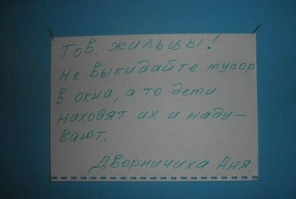 Тов. жильцы!
Не выкидайте мусор
в окна, а то дети
находят их и наду-
вают.
Дворничиха Аня.